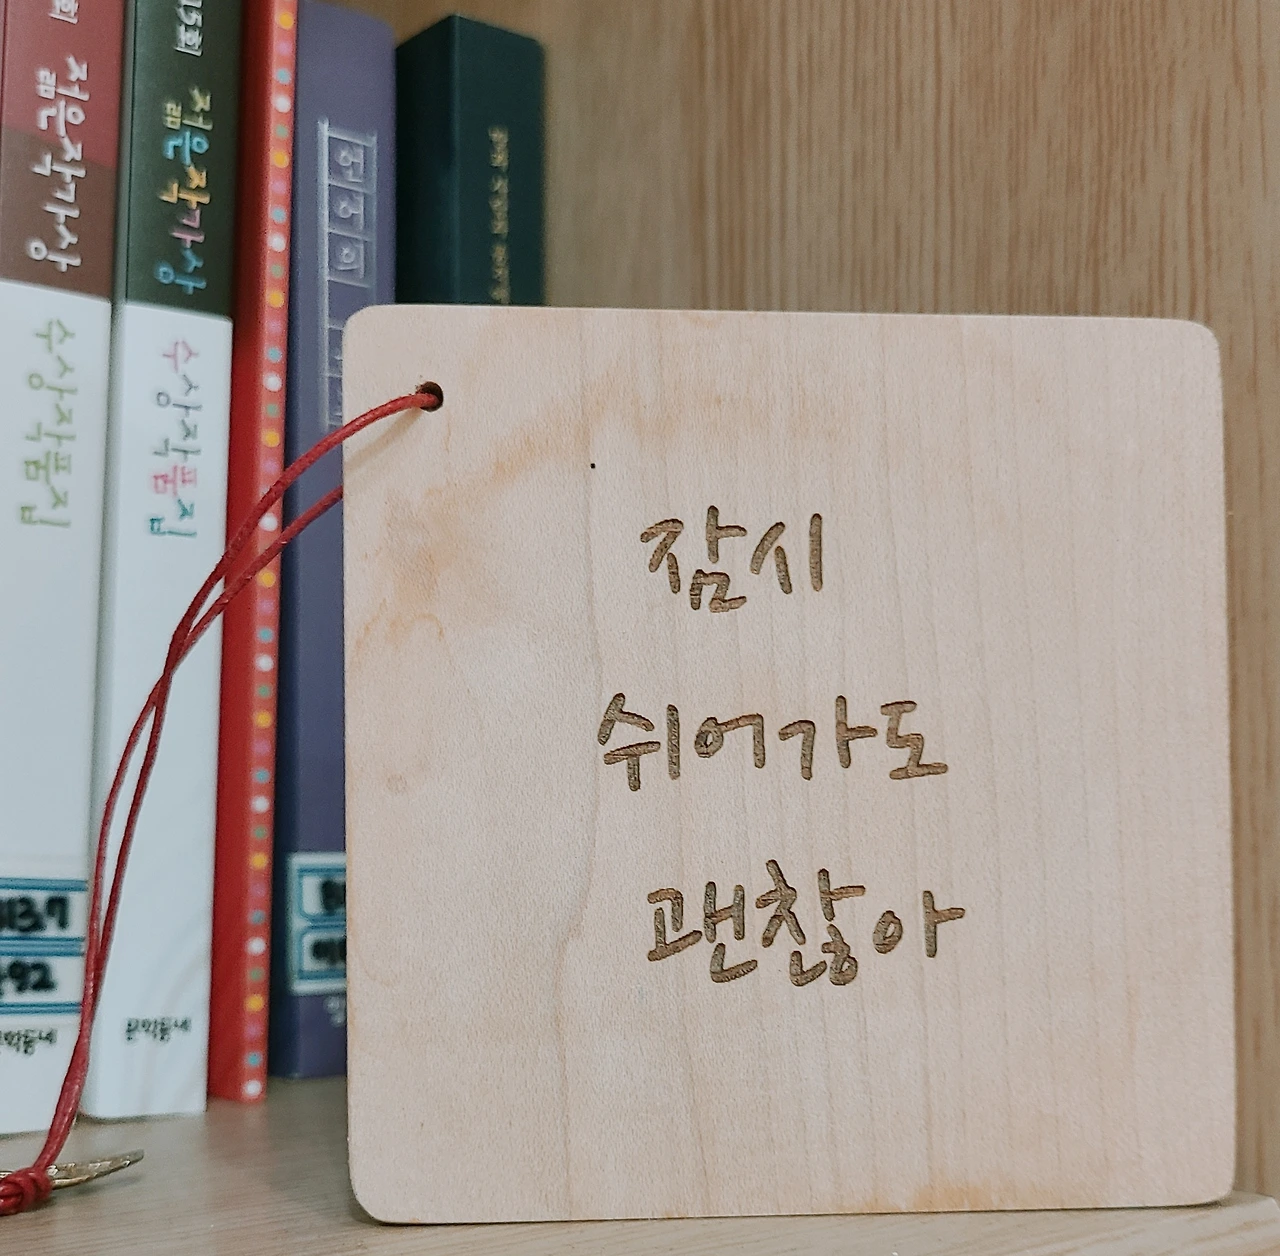 잠시
쉬어가도
괜찮아
젊은작가상
수상작품집
15회
젊은작가상
수상작품집
문학동네
문학동네